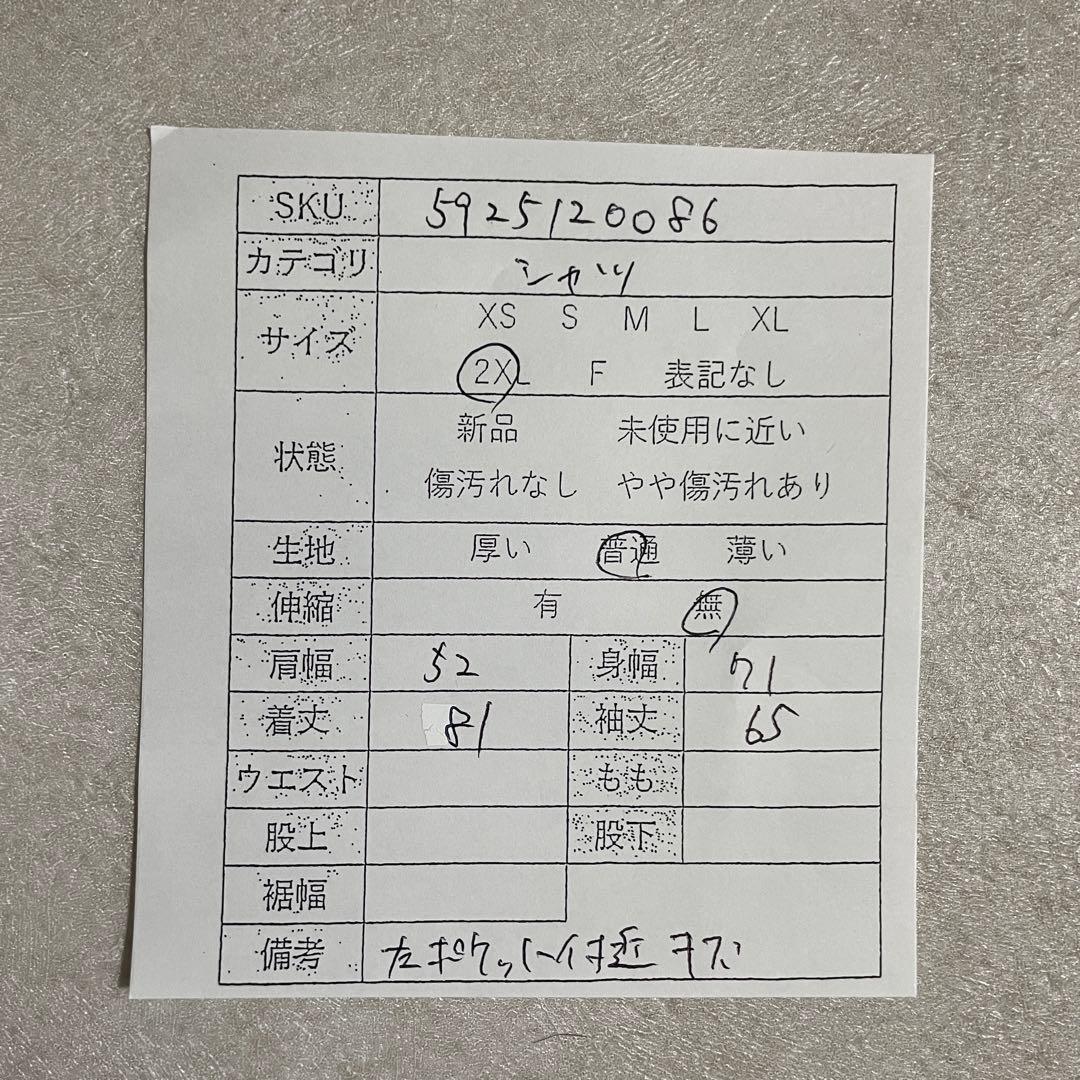 SKU 5925120086
カテゴリ シャツ
サイズ XS S M L XL
2XL F 表記なし
状態 新品 未使用に近い
傷汚れなし やや傷汚れあり
生地 厚い 普通 薄い
伸縮 有 無
肩幅 52 身幅 71
着丈 81 袖丈 65
ウエスト もも
股上 股下
裾幅
備考 左ポケット付近 キズ